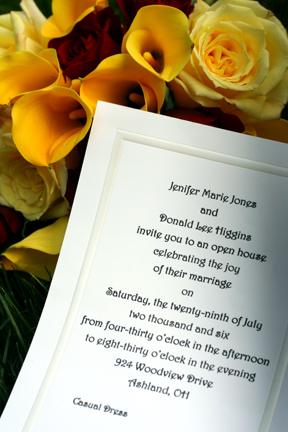 Jenifer Marie Jones
and
Donald Lee Higgins
invite you to an open house
celebrating the joy
of their marriage
on
Saturday, the twenty-ninth of July
two thousand and six
from four-thirty o'clock in the afternoon
to eight-thirty o'clock in the evening
924 Woodview Drive
Ashland, OH
Casual Dress